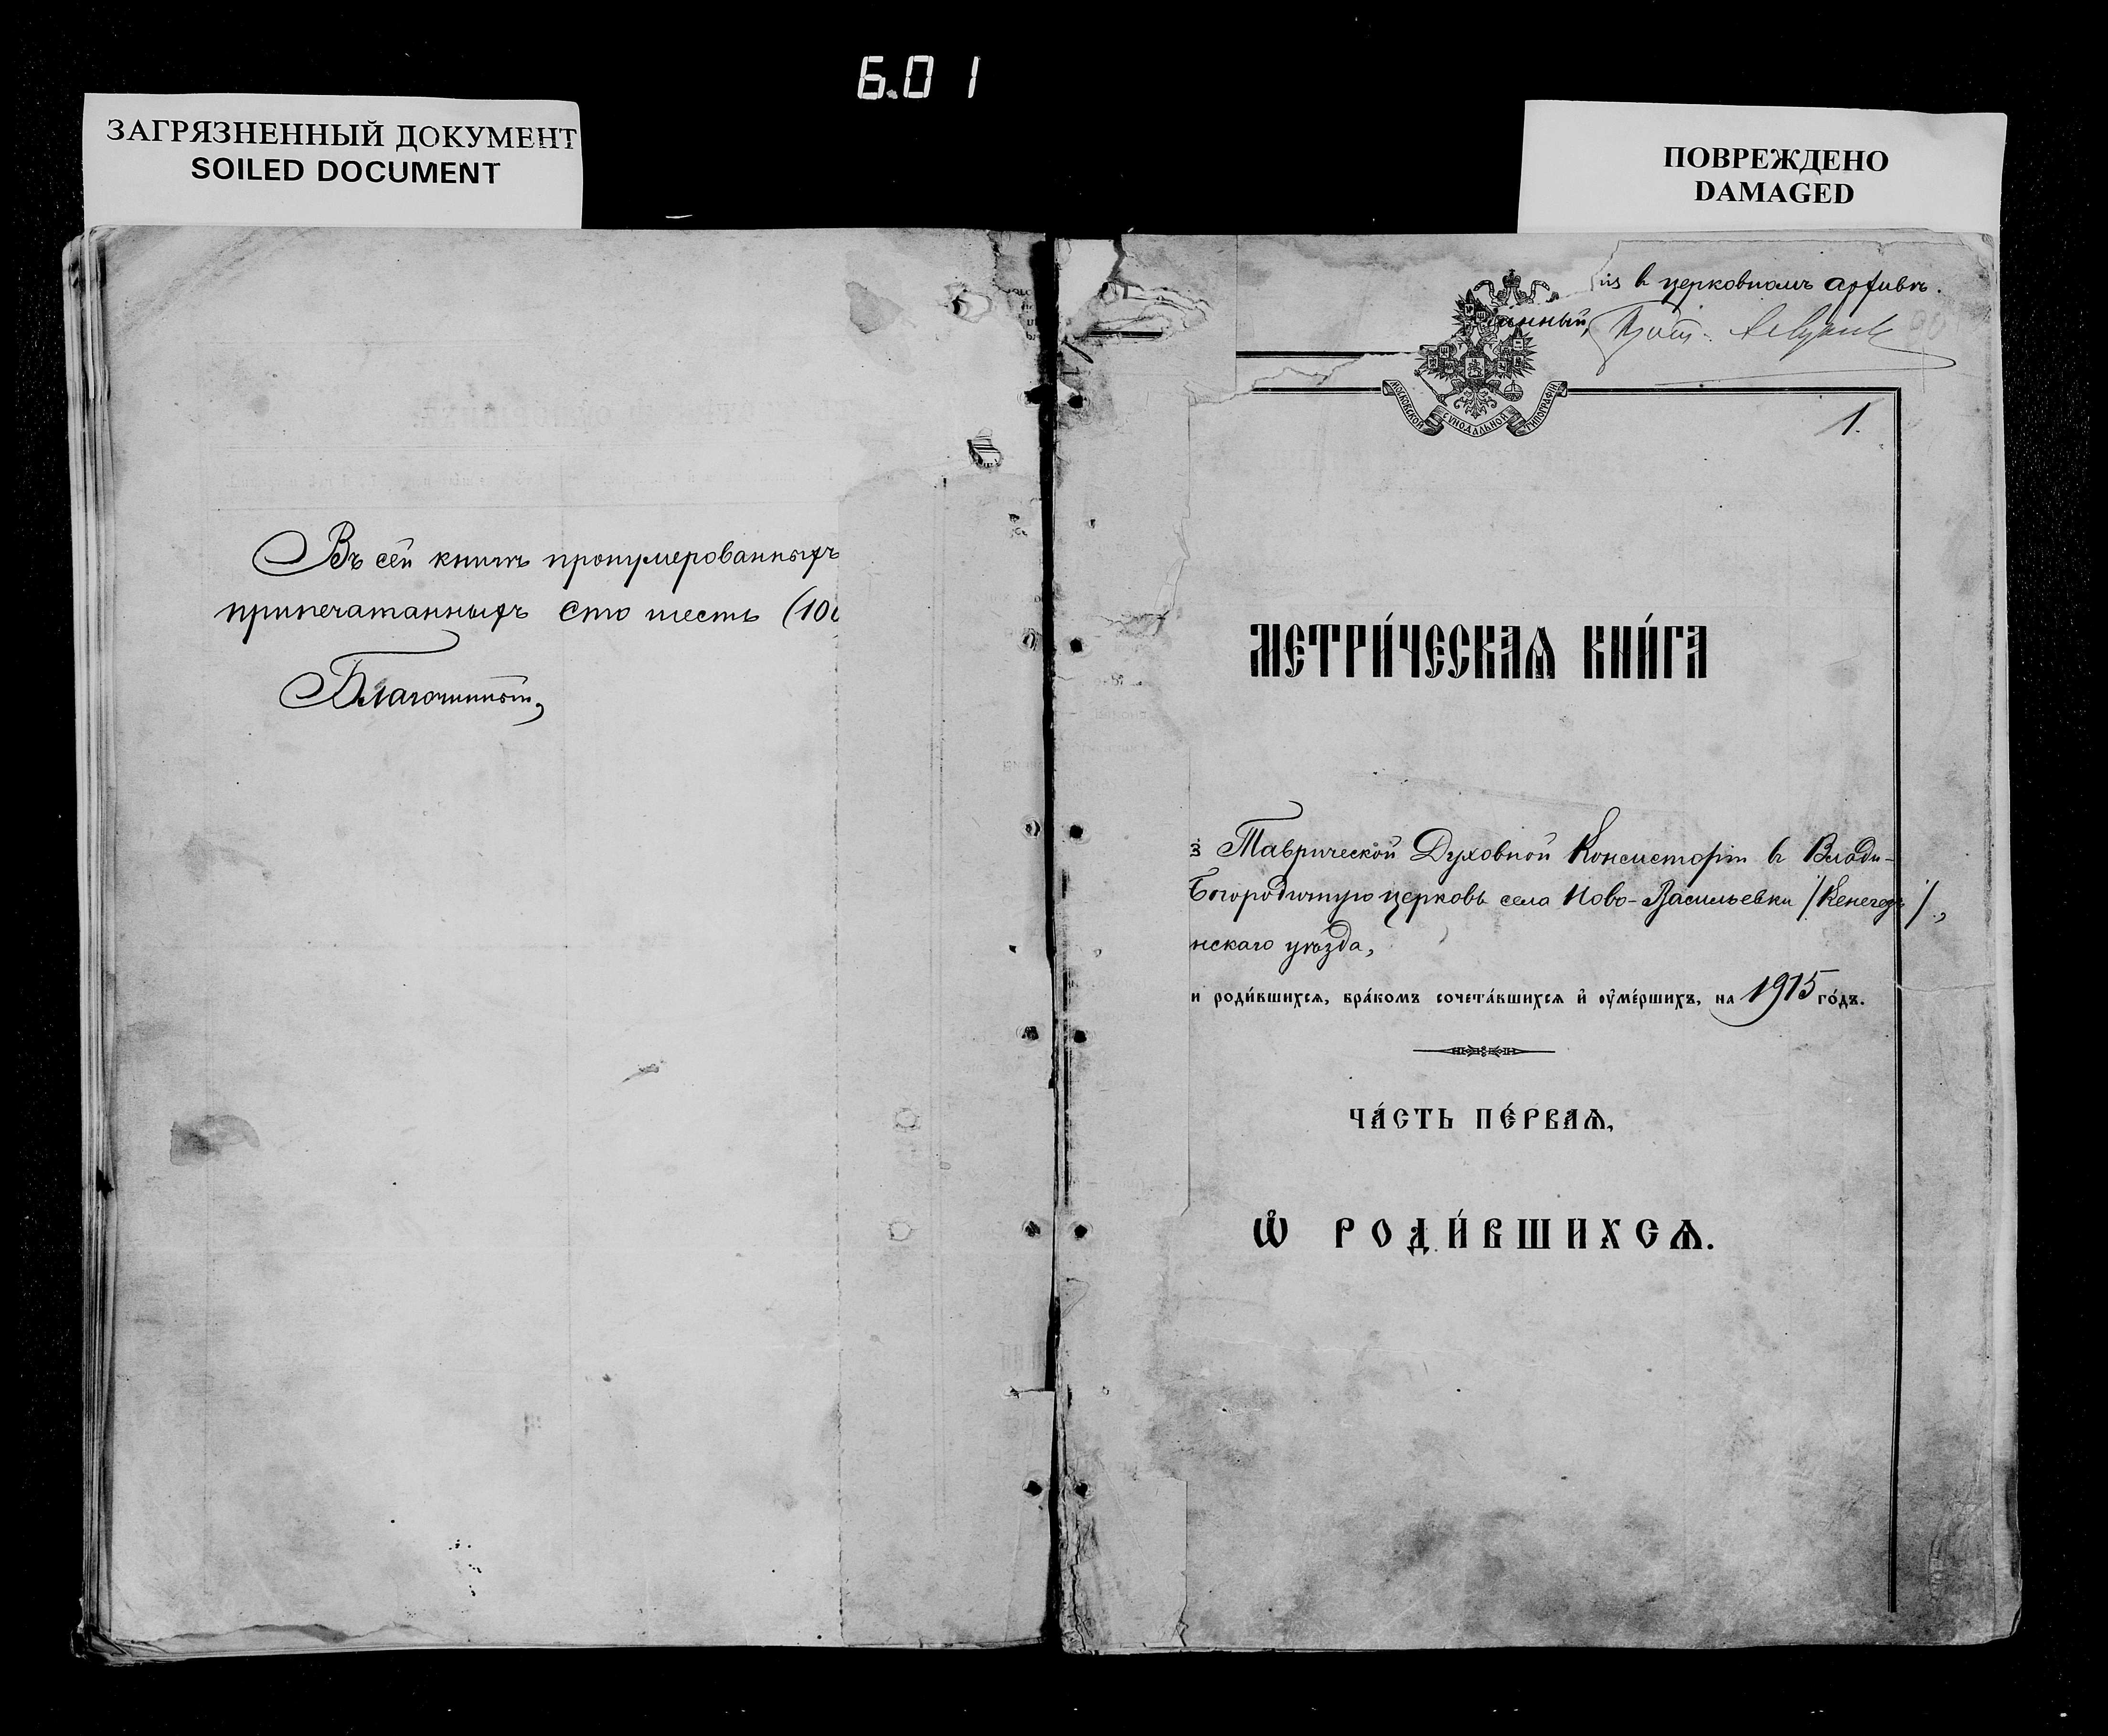 6.01
ЗАГРЯЗНЕННЫЙ ДОКУМЕНТ
SOILED DOCUMENT
ПОВРЕЖДЕНО
DAMAGED
Въ сей книгѣ пронумерованныхъ
припечатанныхъ сто шесть (10
Благочинный,
ія в церковномъ архивѣ.
анный, Прот.
МОСКОВСКОЙ СѴНОДАЛЬНОЙ ТИПОГРАФІИ
1.
МЕТРИ́ЧЕСКАѦ КНИ́ГА
з Таврической Духовной Консисторіи в Влади-
Богородичную церковь села Ново-Васильевки /Кенегезъ/,
нскаго уѣзда,
и роди́вшихсѧ, бра́комъ сочета́вшихсѧ и҆ оу҆ме́ршихъ, на 1915 го́дъ.
ЧА́СТЬ ПЕ́РВАѦ,
Ѽ РОДИ́ВШИХСѦ.